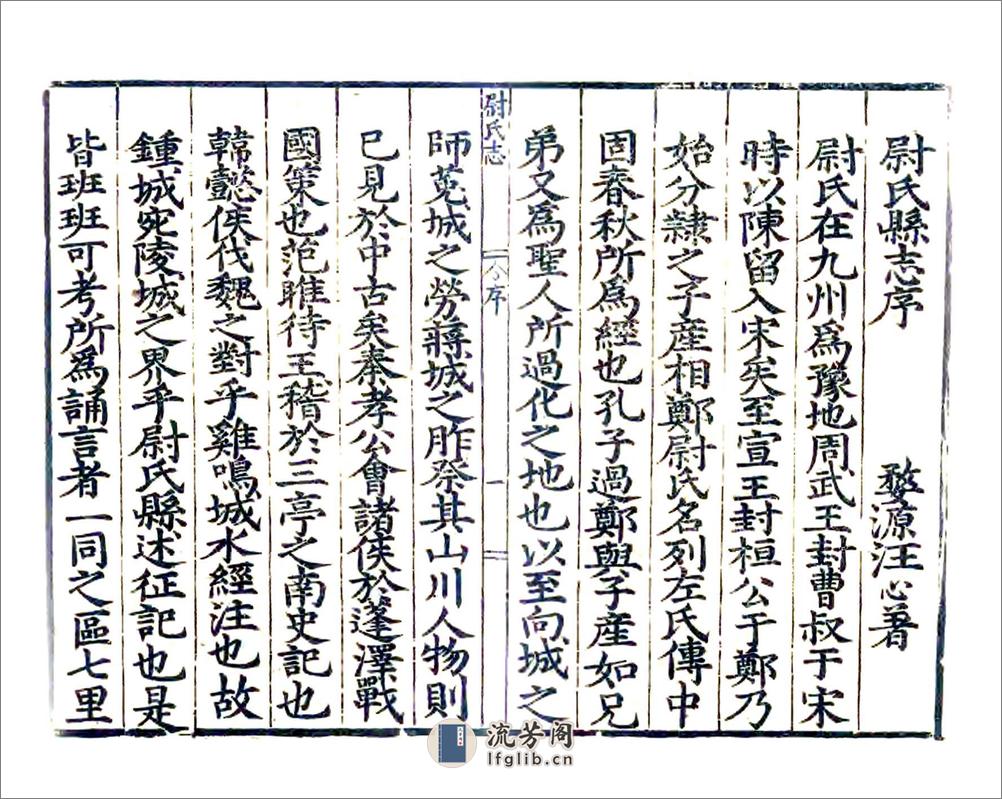 尉氏縣志序 婺源汪心著
尉氏在九州爲豫地周武王封曹叔于宋
時以陳留入宋矣至宣王封桓公于鄭乃
始分隷之子産相鄭尉氏名列左氏傳中
固春秋所爲經也孔子過鄭與子産如兄
弟又爲聖人所過化之地也以至向城之
尉氏志 序 一
師菟城之勞蔣城之胙祭其山川人物則
已見於中古矣秦孝公會諸侯於逢澤戰
國策也范雎待王稽於三亭之南史記也
韓懿侯伐魏之對乎雞鳴城水經注也故
鍾城宛陵城之界乎尉氏縣述征記也是
皆班班可考所爲誦言者一同之區七里
流芳阁
lfglib.cn